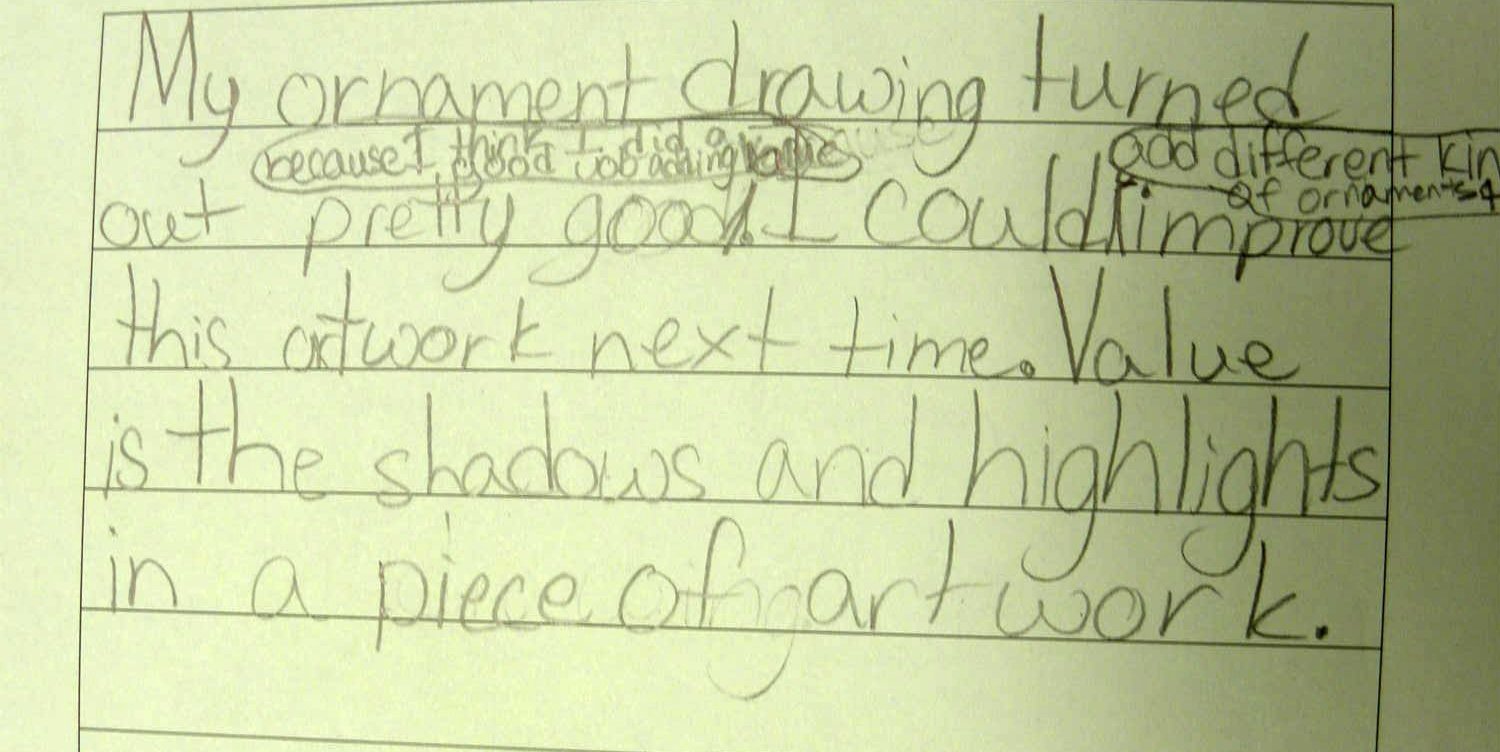 My ornament drawing turned
because I think I did a
good job adding value
add different kin
of ornaments &
out pretty good. I could improve
this artwork next time. Value
is the shadows and highlights
in a piece of artwork.